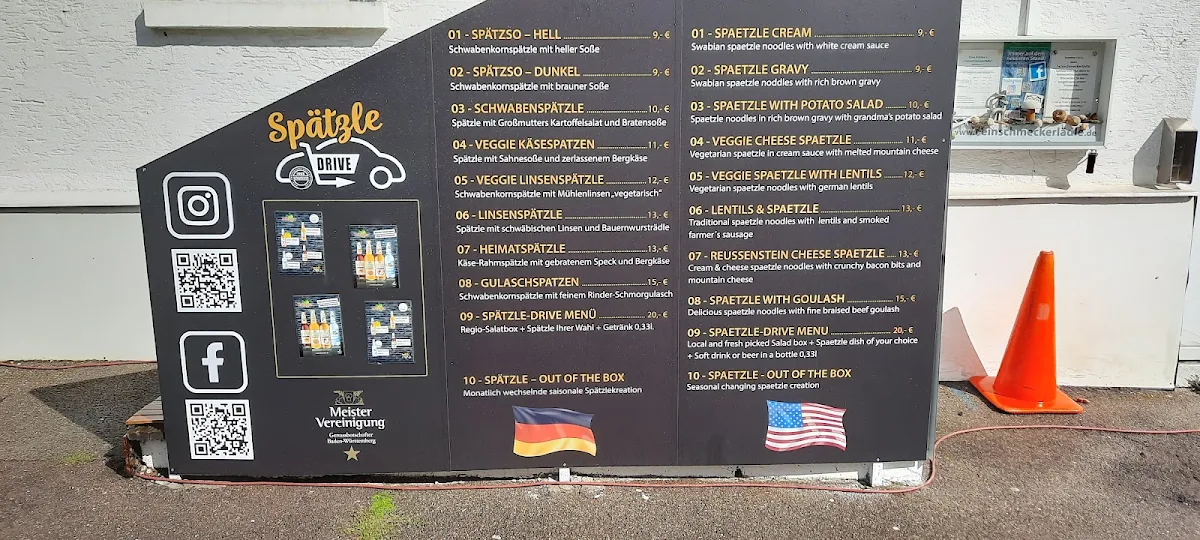 Spätzle
DRIVE
Meister
Vereinigung
Genussbotschafter
Baden-Württemberg
01 - SPÄTZSO – HELL 9,- €
Schwabenkornspätzle mit heller Soße
02 - SPÄTZSO – DUNKEL 9,- €
Schwabenkornspätzle mit brauner Soße
03 - SCHWABENSPÄTZLE 10,- €
Spätzle mit Großmutters Kartoffelsalat und Bratensoße
04 - VEGGIE KÄSESPATZEN 11,- €
Spätzle mit Sahnesoße und zerlassenem Bergkäse
05 - VEGGIE LINSENSPÄTZLE 12,- €
Schwabenkornspätzle mit Mühlenlinsen „vegetarisch"
06 - LINSENSPÄTZLE 13,- €
Spätzle mit schwäbischen Linsen und Bauernwursträdle
07 - HEIMATSPÄTZLE 13,- €
Käse-Rahmspätzle mit gebratenem Speck und Bergkäse
08 - GULASCHSPATZEN 15,- €
Schwabenkornspätzle mit feinem Rinder-Schmorgulasch
09 - SPÄTZLE-DRIVE MENÜ 20,- €
Regio-Salatbox + Spätzle Ihrer Wahl + Getränk 0,33l.
10 - SPÄTZLE – OUT OF THE BOX
Monatlich wechselnde saisonale Spätzlekreation
01 - SPAETZLE CREAM 9,- €
Swabian spaetzle noodles with white cream sauce
02 - SPAETZLE GRAVY 9,- €
Swabian spaetzle noddles with rich brown gravy
03 - SPAETZLE WITH POTATO SALAD 10,- €
Spaetzle noodles in rich brown gravy with grandma's potato salad
04 - VEGGIE CHEESE SPAETZLE 11,- €
Vegetarian spaetzle in cream sauce with melted mountain cheese
05 - VEGGIE SPAETZLE WITH LENTILS 12,- €
Vegetarian spaetzle noodles with german lentils
06 - LENTILS & SPAETZLE 13,- €
Traditional spaetzle noodles with lentils and smoked
farmer´s sausage
07 - REUSSENSTEIN CHEESE SPAETZLE 13,- €
Cream & cheese spaetzle noodles with crunchy bacon bits and
mountain cheese
08 - SPAETZLE WITH GOULASH 15,- €
Delicious spaetzle noodles with fine braised beef goulash
09 - SPAETZLE-DRIVE MENU 20,- €
Local and fresh picked Salad box + Spaetzle dish of your choice
+ Soft drink or beer in a bottle 0,33l
10 - SPAETZLE - OUT OF THE BOX
Seasonal changing spaetzle creation